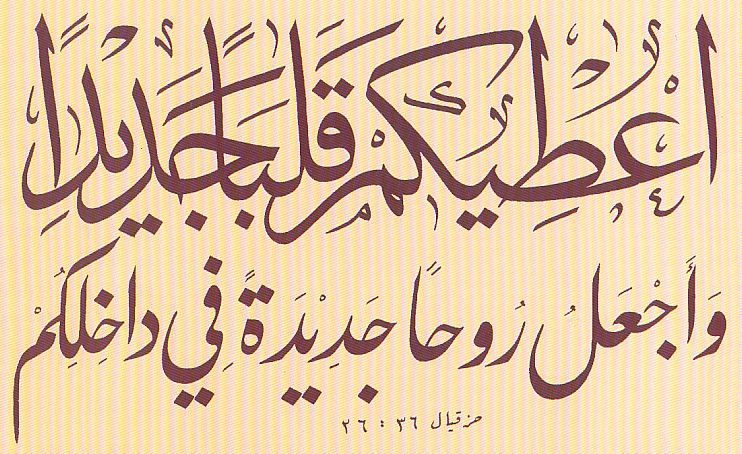 اعطيكم قلبًا جديدًا
وَأَجْعَلُ رُوحًا جَدِيْدَةً فِي دَاخِلِكُمْ
حزقيال ٣٦ : ٢٦